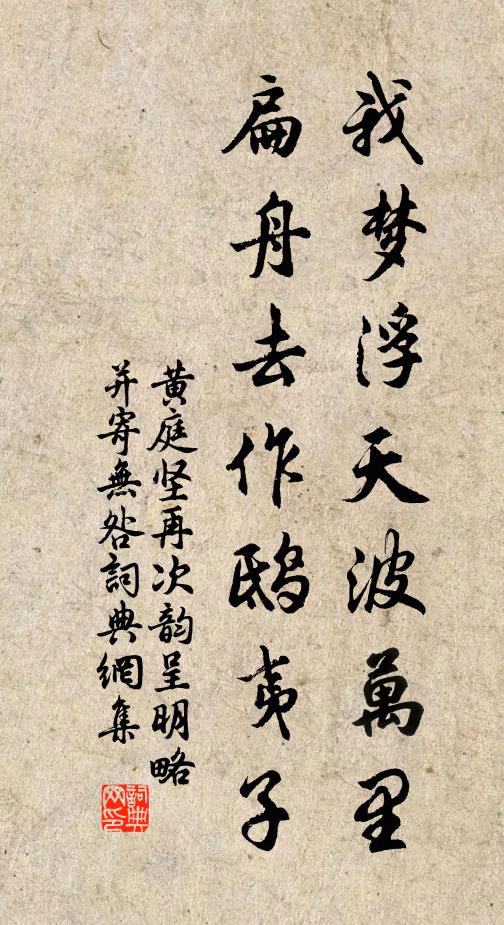 我梦浮天波萬里
扁舟去作鸱夷子
黄庭坚再次韵呈明略
并寄無咎詞典網集
詞典网印